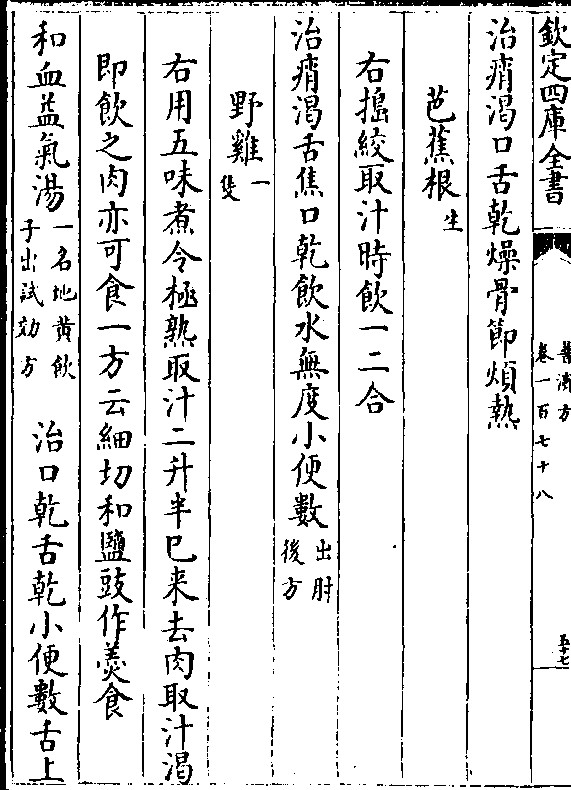 欽定四庫全書
普濟方
卷一百七十八
五十七
治痟渴口舌乾燥骨節煩熱
芭蕉根生
右搗絞取汁時飲一二合
治痟渴舌焦口乾飲水無度小便數出肘後方
野雞一隻
右用五味煮令極熟取汁二升半巳来去肉取汁渴
即飲之肉亦可食一方云細切和鹽豉作羮食
和血益氣湯一名地黄飲子出試効方　治口乾舌乾小便數舌上